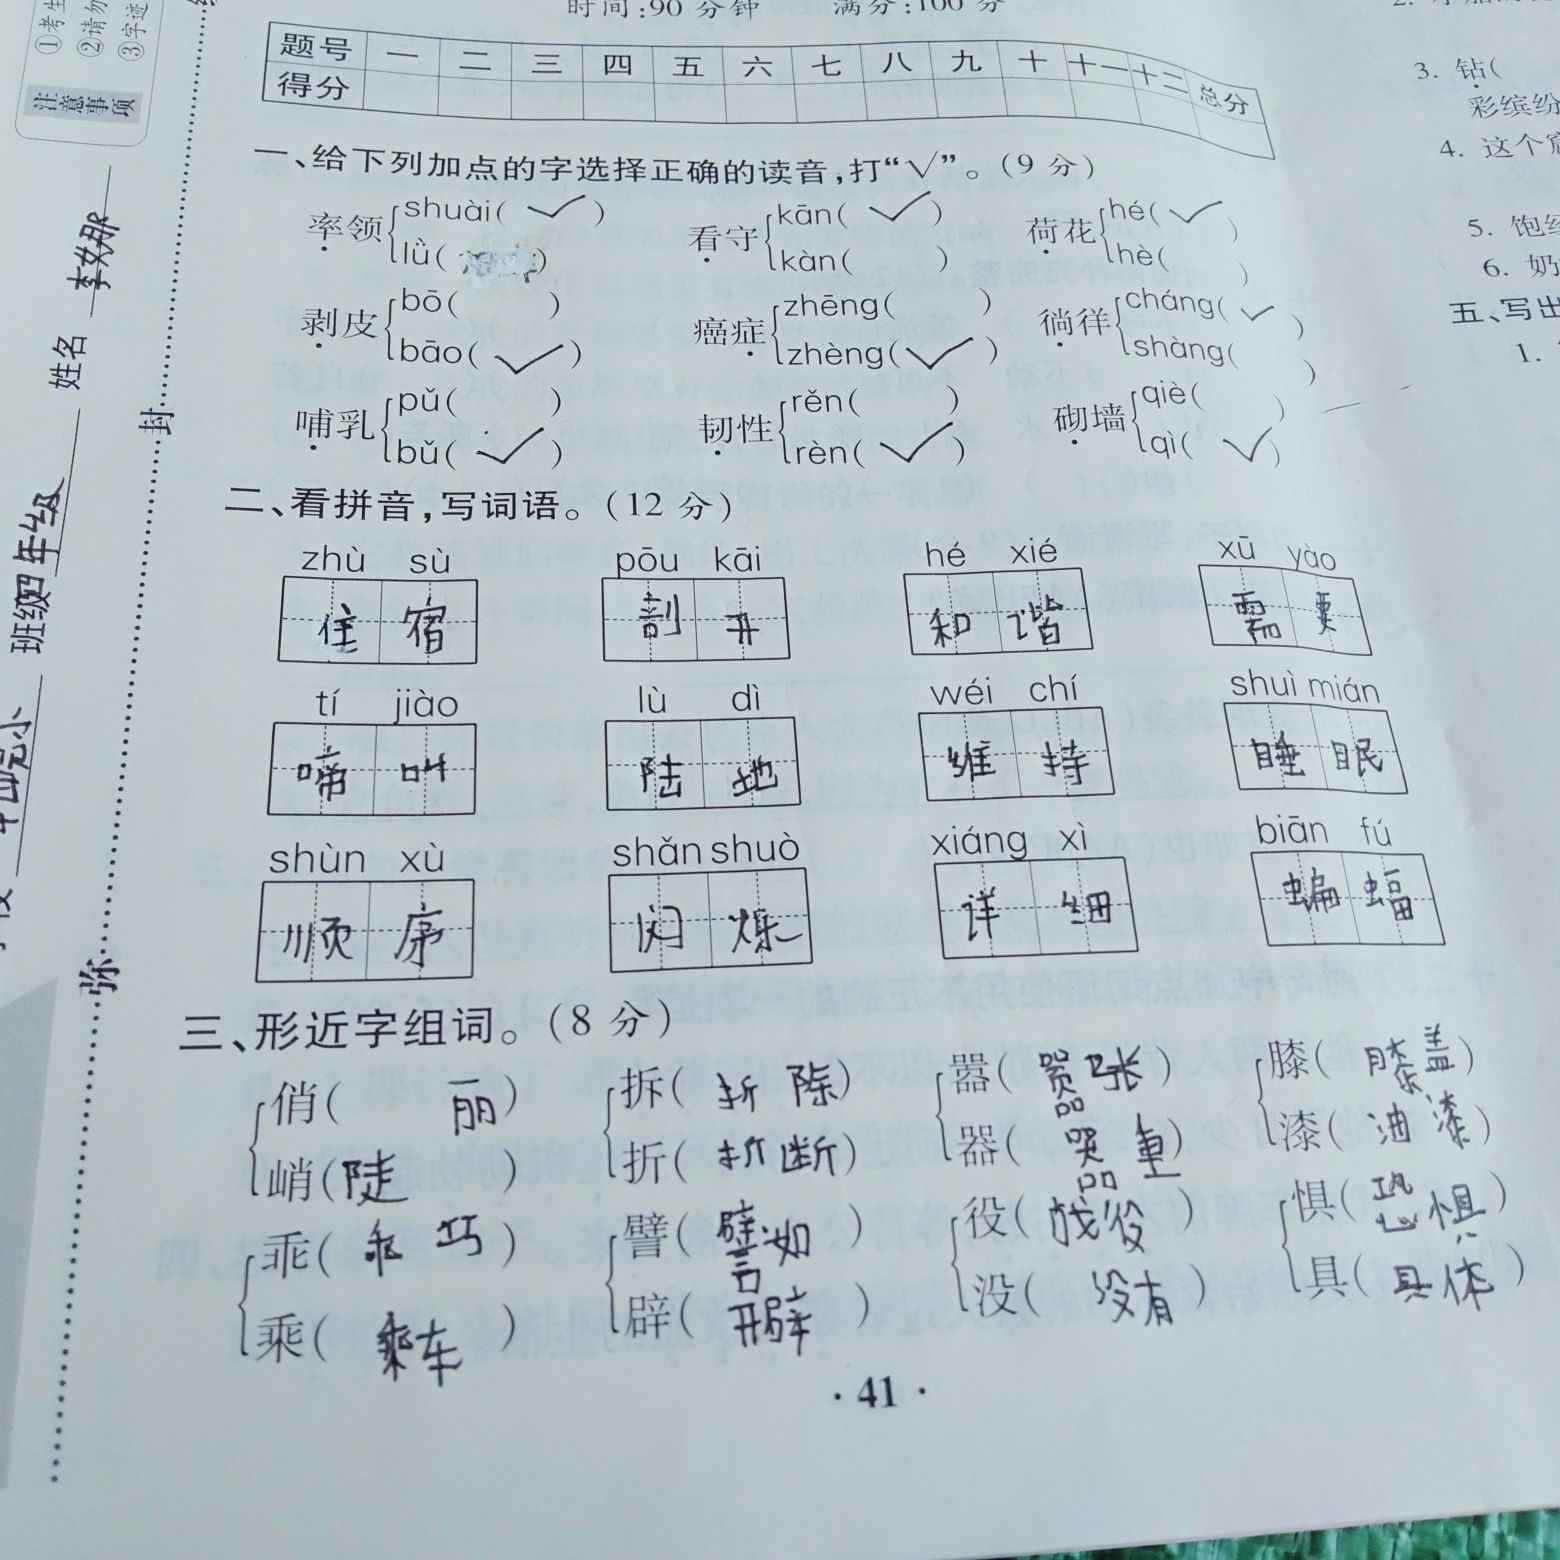 时间:90分钟 满分:100分
题号 一 二 三 四 五 六 七 八 九 十 十一 十二 总分
得分
一、给下列加点的字选择正确的读音,打“√”。(9分)
率领 shuài( √ ) lǜ( ) 看守 kān( √ ) kàn( ) 荷花 hé( √ ) hè( )
剥皮 bō( ) bāo( √ ) 癌症 zhēng( ) zhèng( √ ) 徜徉 cháng( √ ) shàng( )
哺乳 pǔ( ) bǔ( √ ) 韧性 rěn( ) rèn( √ ) 砌墙 qiè( ) qì( √ )
二、看拼音,写词语。(12分)
zhù sù pōu kāi hé xié xū yào
住宿 剖开 和谐 需要
tí jiào lù dì wéi chí shuì mián
啼叫 陆地 维持 睡眠
shùn xù shǎn shuò xiáng xì biān fú
顺序 闪烁 详细 蝙蝠
三、形近字组词。(8分)
俏( 丽 ) 拆( 拆除 ) 嚣( 嚣张 ) 膝( 膝盖 )
峭( 陡 ) 折( 折断 ) 器( 器重 ) 漆( 油漆 )
乖( 乖巧 ) 譬( 譬如 ) 役( 战役 ) 惧( 恐惧 )
乘( 乘车 ) 辟( 开辟 ) 没( 没有 ) 具( 具体 )
· 41 ·
①考生
②请勿
③字迹
注意事项
姓名
班级 四年级
封
弥
3. 钻(
彩缤纷
4. 这个
5. 饱经
6. 奶
五、写出
1.